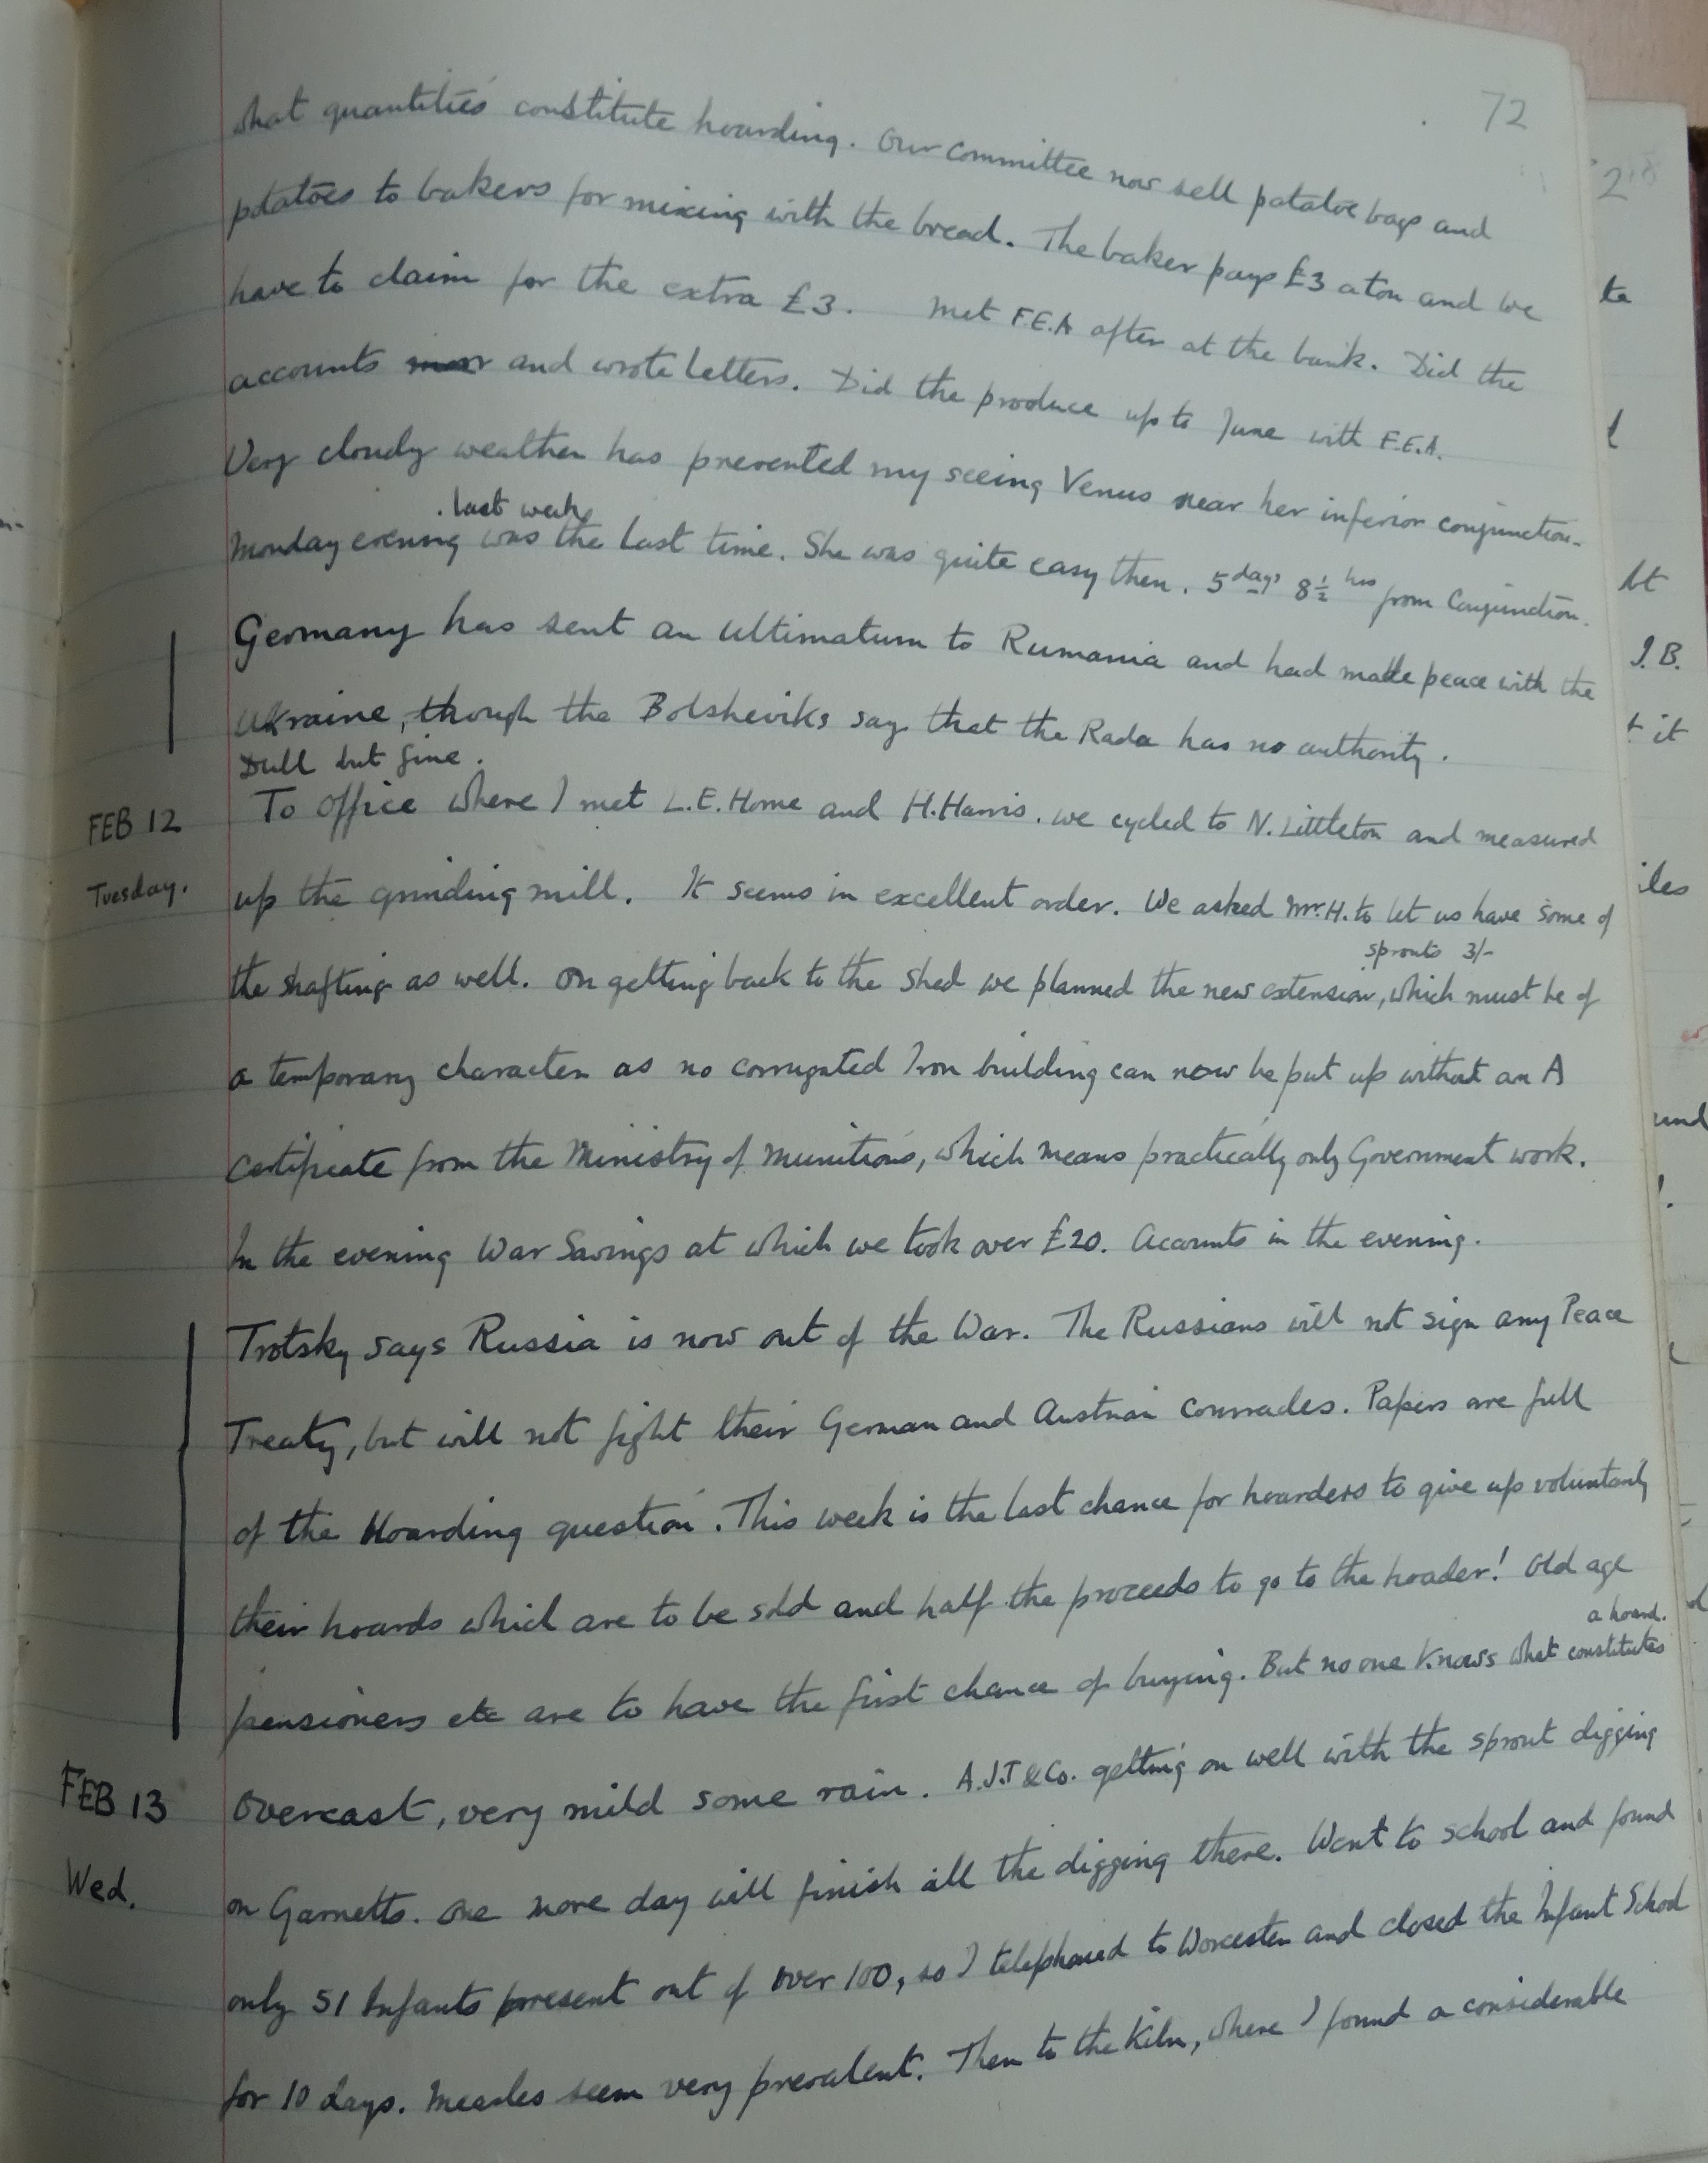 72
what quantities constitute hoarding. Our committee now sell potatoe bags and
potatoes to bakers for mixing with the bread. The baker pays £3 a ton and we
have to claim for the extra £3. Met F.E.A after at the bank. Did the
accounts and wrote letters. Did the produce up to June with F.E.A.
Very cloudy weather has prevented my seeing Venus near her inferior conjunction.
last week
Monday evening was the last time. She was quite easy then. 5 days 8½ hrs from Conjunction.
Germany has sent an ultimatum to Rumania and had made peace with the
Ukraine, though the Bolsheviks say that the Rada has no authority.
Dull but fine.
FEB 12 To office where I met L.E. Horne and H. Harris. we cycled to N. Littleton and measured
Tuesday. up the grinding mill. It seems in excellent order. We asked Mr. H. to let us have some of
sprouts 3/-
the shafting as well. On getting back to the shed we planned the new extension, which must be of
a temporary character as no corrugated Iron building can now be put up without an A
Certificate from the Ministry of Munitions, which means practically only Government work.
In the evening War Savings at which we took over £20. Accounts in the evening.
Trotsky says Russia is now out of the War. The Russians will not sign any Peace
Treaty, but will not fight their German and Austrian comrades. Papers are full
of the Hoarding question. This week is the last chance for hoarders to give up voluntarily
their hoards which are to be sold and half the proceeds to go to the hoader! Old age
a hoard.
pensioners etc are to have the first chance of buying. But no one knows what constitutes
FEB 13 Overcast, very mild some rain. A.J.T & Co. getting on well with the sprout digging
Wed. on Garnetts. One more day will finish all the digging there. Went to school and found
only 51 Infants present out of over 100, so I telephoned to Worcester and closed the Infant School
for 10 days. Measles seem very prevalent. Then to the Kiln, where I found a considerable